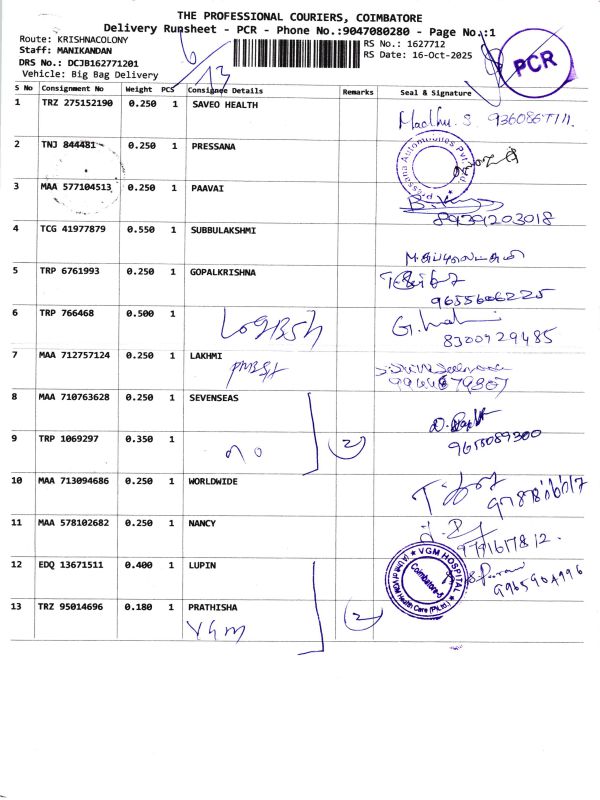 THE PROFESSIONAL COURIERS, COIMBATORE
Delivery Runsheet - PCR - Phone No.:9047080280 - Page No.:1
Route: KRISHNACOLONY
Staff: MANIKANDAN
DRS No.: DCJB162771201
Vehicle: Big Bag Delivery
6/13
RS No.: 1627712
RS Date: 16-Oct-2025
PCR
S No Consignment No Weight PCS Consignee Details Remarks Seal & Signature
1 TRZ 275152190 0.250 1 SAVEO HEALTH Madhu. S
2 TNJ 844481 0.250 1 PRESSANA Pressana Automobiles Pvt. Ltd.
3 MAA 577104513 0.250 1 PAAVAI
8939203018
4 TCG 41977879 0.550 1 SUBBULAKSHMI
5 TRP 6761993 0.250 1 GOPALKRISHNA
9655606225
6 TRP 766468 0.500 1
8300729485
7 MAA 712757124 0.250 1 LAKHMI
8 MAA 710763628 0.250 1 SEVENSEAS
9 TRP 1069297 0.350 1 2
9655089300
10 MAA 713094686 0.250 1 WORLDWIDE
11 MAA 578102682 0.250 1 NANCY
12 EDQ 13671511 0.400 1 LUPIN
VGM HOSPITAL
Coimbatore-5
9965904996
13 TRZ 95014696 0.180 1 PRATHISHA 2
VGM